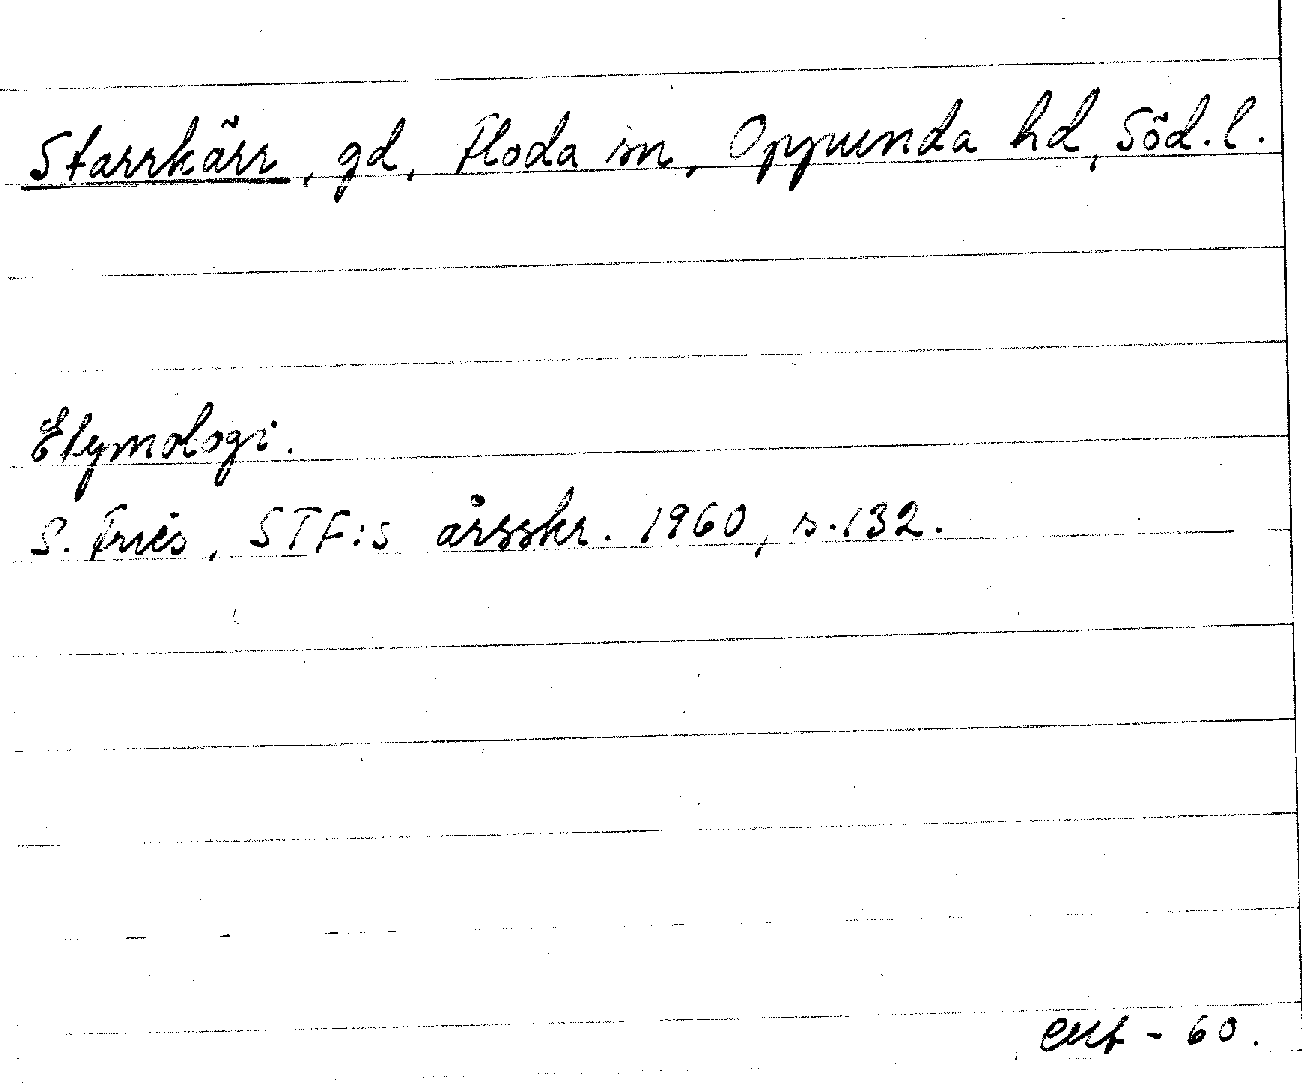 Starrkärr, gd, Floda sn, Oppunda hd, Söd.l.
Etymologi.
S. Fries, STF:s årsskr. 1960, s.132.
- 60.